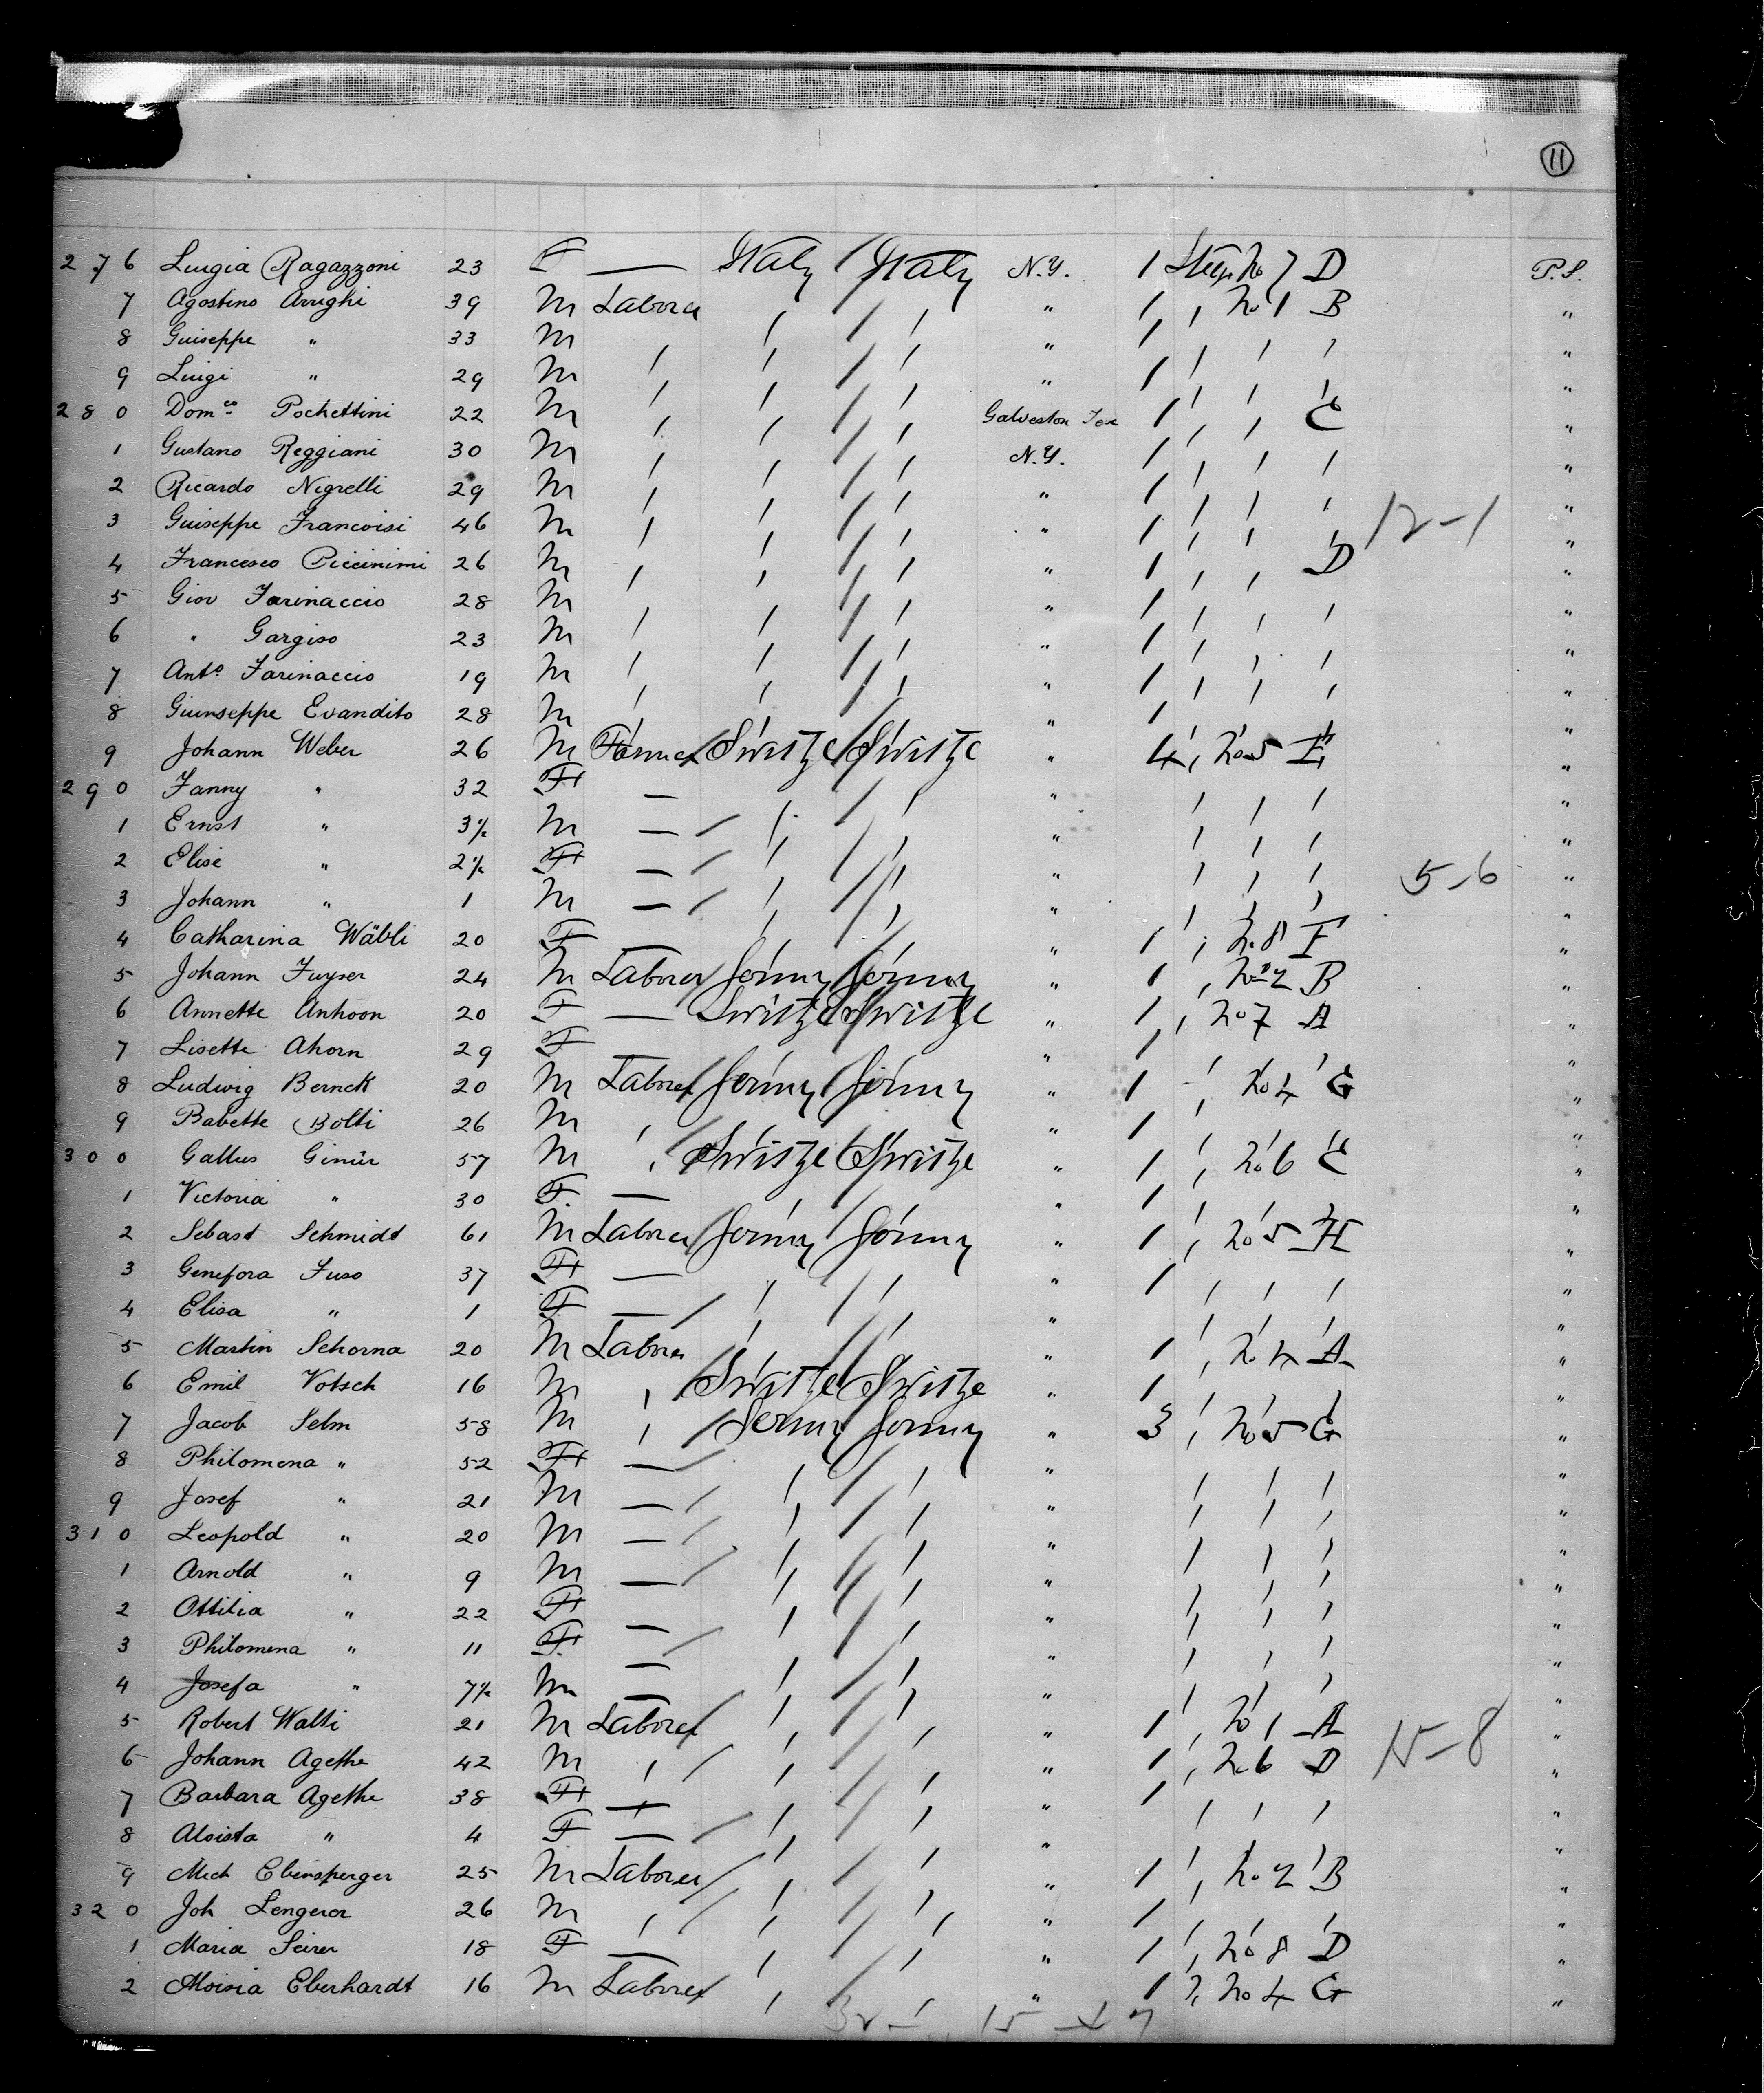 11
276 Luigia Ragazzoni 23 F — Italy Italy N.Y. 1 Steg. No 7 D P.S.
7 Agostino Arrighi 39 M Laborer ' ' " 1 ' No 1 B "
8 Guiseppe " 33 M ' ' ' " 1 ' ' ' "
9 Luigi " 29 M ' ' ' " 1 ' ' ' "
280 Domco Pochettini 22 M ' ' ' Galveston Tex 1 ' ' C "
1 Gustano Reggiani 30 M ' ' ' N.Y. 1 ' ' ' "
2 Ricardo Nigrelli 29 M ' ' ' " 1 ' ' ' "
3 Guiseppe Francoisi 46 M ' ' ' " 1 ' ' ' 12-1 "
4 Francesco Piccinimi 26 M ' ' ' " 1 ' ' D "
5 Giov Farinaccio 28 M ' ' ' " 1 ' ' ' "
6 " Gargiso 23 M ' ' ' " 1 ' ' ' "
7 Anto Farinaccio 19 M ' ' ' " 1 ' ' ' "
8 Giunseppe Evandito 28 M ' ' ' " 1 ' ' ' "
9 Johann Weber 26 M Farmer Switze Switze " 4 ' No 5 E "
290 Fanny " 32 F — ' ' " ' ' ' "
1 Ernst " 3½ M — ' ' " ' ' ' "
2 Elise " 2½ F — ' ' " ' ' ' 5-6 "
3 Johann " 1 M — ' ' " ' ' ' "
4 Catharina Wäbli 20 F ' ' " 1 ' No 8 F "
5 Johann Fuyser 24 M Laborer Germny Germny " 1 ' No 2 B "
6 Annette Anhoon 20 F — Switze Switze " 1 ' No 7 A "
7 Lisette Ahorn 29 F — ' ' " 1 ' ' ' "
8 Ludwig Bernck 20 M Laborer Germny Germny " 1 ' No 4 G "
9 Babette Bolti 26 M ' ' ' " 1 ' ' ' "
300 Gallus Ginür 57 M ' Switze Switze " 1 ' No 6 C "
1 Victoria " 30 F — ' ' " 1 ' ' ' "
2 Sebast Schmidt 61 M Laborer Germny Germny " 1 ' No 5 H "
3 Genefora Fuso 37 F — ' ' " 1 ' ' ' "
4 Elisa " 1 F — ' ' " ' ' ' "
5 Martin Schorna 20 M Laborer ' ' " 1 ' No 4 A "
6 Emil Votsch 16 M ' Switze Switze " 1 ' ' ' "
7 Jacob Selm 58 M ' Germny Germny " 3 ' No 5 G "
8 Philomena " 52 F — ' ' " ' ' ' "
9 Josef " 21 M — ' ' " ' ' ' "
310 Leopold " 20 M — ' ' " ' ' ' "
1 Arnold " 9 M — ' ' " ' ' ' "
2 Ottilia " 22 F — ' ' " ' ' ' "
3 Philomena " 11 F — ' ' " ' ' ' "
4 Josefa " 7½ M — ' ' " ' ' ' "
5 Robert Walti 21 M Laborer ' ' " 1 ' No 1 A "
6 Johann Agethe 42 M ' ' ' " 1 ' No 6 D 15-8 "
7 Barbara Agethe 38 F — ' ' " 1 ' ' ' "
8 Aloista " 4 F — ' ' " "
9 Mich Ebensperger 25 M Laborer ' ' " 1 ' No 2 B "
320 Joh Lengeror 26 M ' ' ' " 1 ' ' ' "
1 Maria Seirer 18 F — ' ' " 1 ' No 8 D "
2 Aloisia Eberhardt 16 M Laborer ' ' " 1 ' No 4 G "